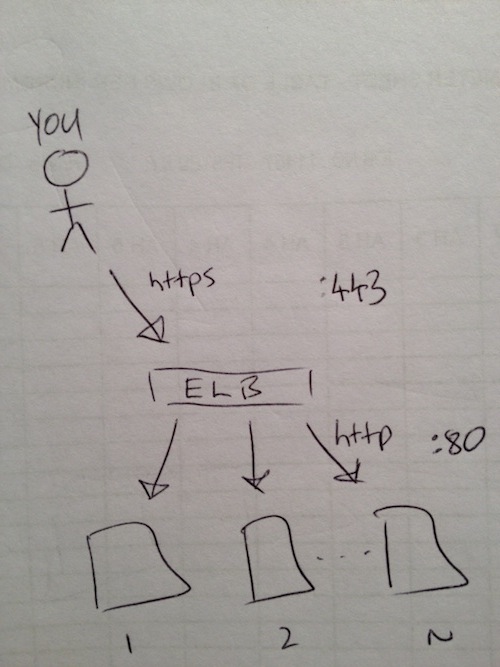 YOU
https :443
ELB
http :80
1 2 N